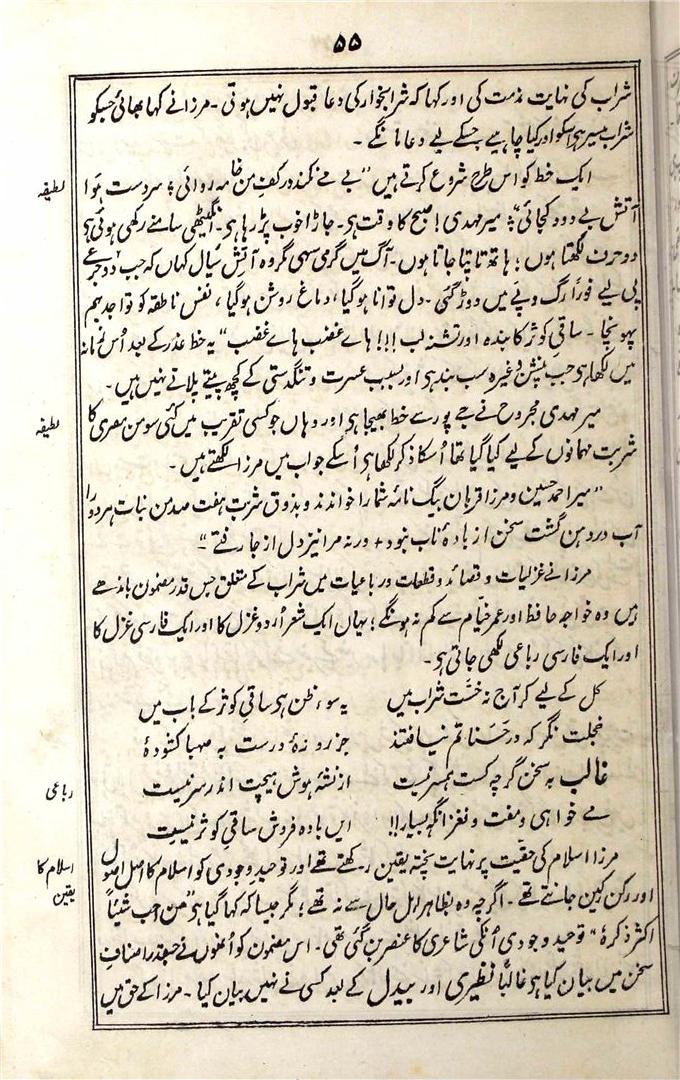 ۵۵
شراب کی نہایت مذمت کی اور کہا کہ شرابخوار کی دعا قبول نہیں ہوتی ۔ مرزا نے کہا بھائی جسکو
شراب میسر ہی اسکو اور کیا چاہیے جسکے لیے دعا مانگے ۔
لطیفہ
ایک خط کو اس طرح شروع کرتے ہیں ”بے مے نکند در کف من خامہ روائی ؛ سردست ہوا
آتش بے دود کجائی“ ؛ میر مہدی ! صبح کا وقت ہی ۔ جاڑا خوب پڑ رہا ہی ۔ انگیٹھی سامنے رکھی ہوئی ہی
دو حرف لکھتا ہوں ؛ ہاتھ تاپتا جاتا ہوں ۔ آگ میں گرمی سہی مگر وہ آتش سیال کہاں کہ جب دو جرعے
پی لیے فوراً رگ و پے میں دوڑ گئی ۔ دل توانا ہوگیا، دماغ روشن ہوگیا ، نفس ناطقہ کو تواجد بہم
پہونچا ۔ ساقی کوثر کا بندہ اور تشنہ لب !!! ہاے غضب ہاے غضب “ یہ خط غدر کے بعد اُس زمانہ
میں لکھا ہی جب پنشن وغیرہ سب بند ہی اور بسبب عسرت و تنگدستی کے کچھ پیتے پلاتے نہیں ہیں ۔
لطیفہ
میر مہدی مجروح نے جے پور سے خط بھیجا ہی اور وہاں جو کسی تقریب میں کئی سو من مصری کا
شربت مہمانوں کے لیے کیا گیا تھا اُسکا ذکر لکھا ہی اُسکے جواب میں مرزا لکھتے ہیں ۔
”میر احمد حسین و مرزا قربان بیگ نامۂ شما را خواندند و بذوق شربت ہفت صد من نبات ہر دو را
آب در دہن گشت سخن از بادۂ ناب نبود + ورنہ مرا نیز دل از جا رفتے “ ۔
مرزا نے غزلیات و قصائد و قطعات و رباعیات میں شراب کے متعلق جس قدر مضمون باندھے
ہیں وہ خواجہ حافظ اور عمر خیّام سے کم نہ ہونگے ؛ یہاں ایک شعر اُردو غزل کا اور ایک فارسی غزل کا
اور ایک فارسی رباعی لکھی جاتی ہی ۔
کل کے لیے کر آج نہ خسّت شراب میں یہ سوء ظن ہی ساقی کوثر کے باب میں
خجلت نگر کہ در حَسَناتم نیافتند جز روزۂ درست بہ صہبا کشودۂ
رباعی
غالب بہ سخن گرچہ کست ہمسر نیست از نشۂ ہوش ہیچت اندر سر نیست
مے خواہی و مفت و نغز انگہ بسیار!! این بادہ فروش ساقی کوثر نیست
اسلام کا یقین
مرزا اسلام کی حقّیت پر نہایت پختہ یقین رکھتے تھے اور توحید وجودی کو اسلام کا اصل اصول
اور رکن رکین جانتے تھے ۔ اگرچہ وہ بظاہر اہل حال سے نہ تھے ؛ مگر جیسا کہ کہا گیا ہی ”من احب شئیاً
اکثر ذکرہٗ “ توحید وجودی اُنکی شاعری کا عنصر بن گئی تھی ۔ اس مضمون کو اُنھوں نے جسقدر اصناف
سخن میں بیان کیا ہی غالباً نظیری اور بیدل کے بعد کسی نے نہیں بیان کیا ۔ مرزا کے حق میں